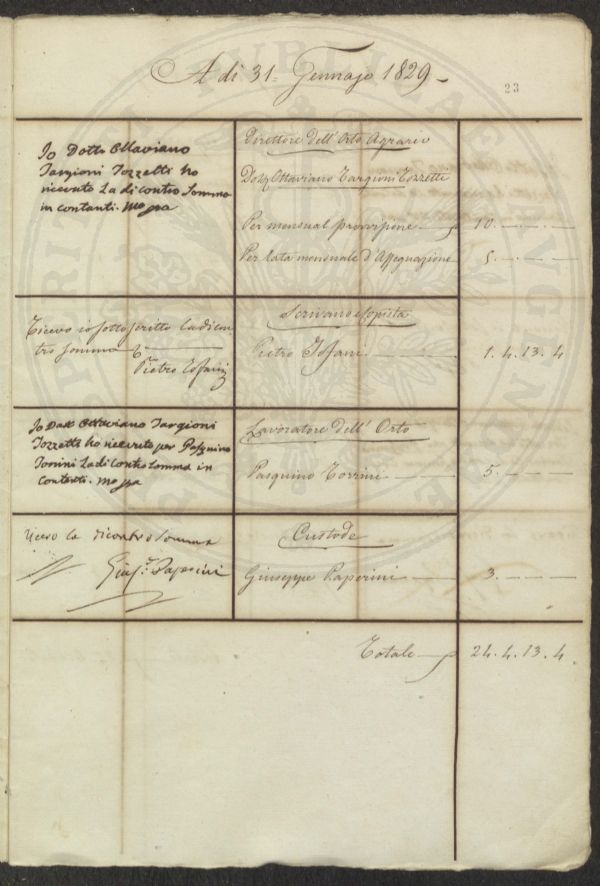 A dì 31= Gennajo 1829-
23
Io Dott. Ottaviano
Targioni Tozzetti ho
ricevuto La di contro Somma
in contanti. Mo pa
Direttore dell' Orto Agrario
Dott. Ottaviano Targioni Tozzetti
Per mensual provvisione 10. — —
Per rata mensuale d'Assegnazione 5. — —
Ricevo io sottoscritto la di con
tro somma
Pietro
Scrivano e Copista
Pietro 1. 4. 13. 4
Io Dott. Ottaviano Targioni
Tozzetti ho ricevuto per Pasquino
Torrini La di Contro Somma in
Contanti. Mo pa
Lavoratore dell' Orto
Pasquino Torrini 5. — —
ricevo la di contro Somma
Gius.e Paperini
Custode
Giuseppe Paperini 3. — —
Totale 24. 4. 13. 4